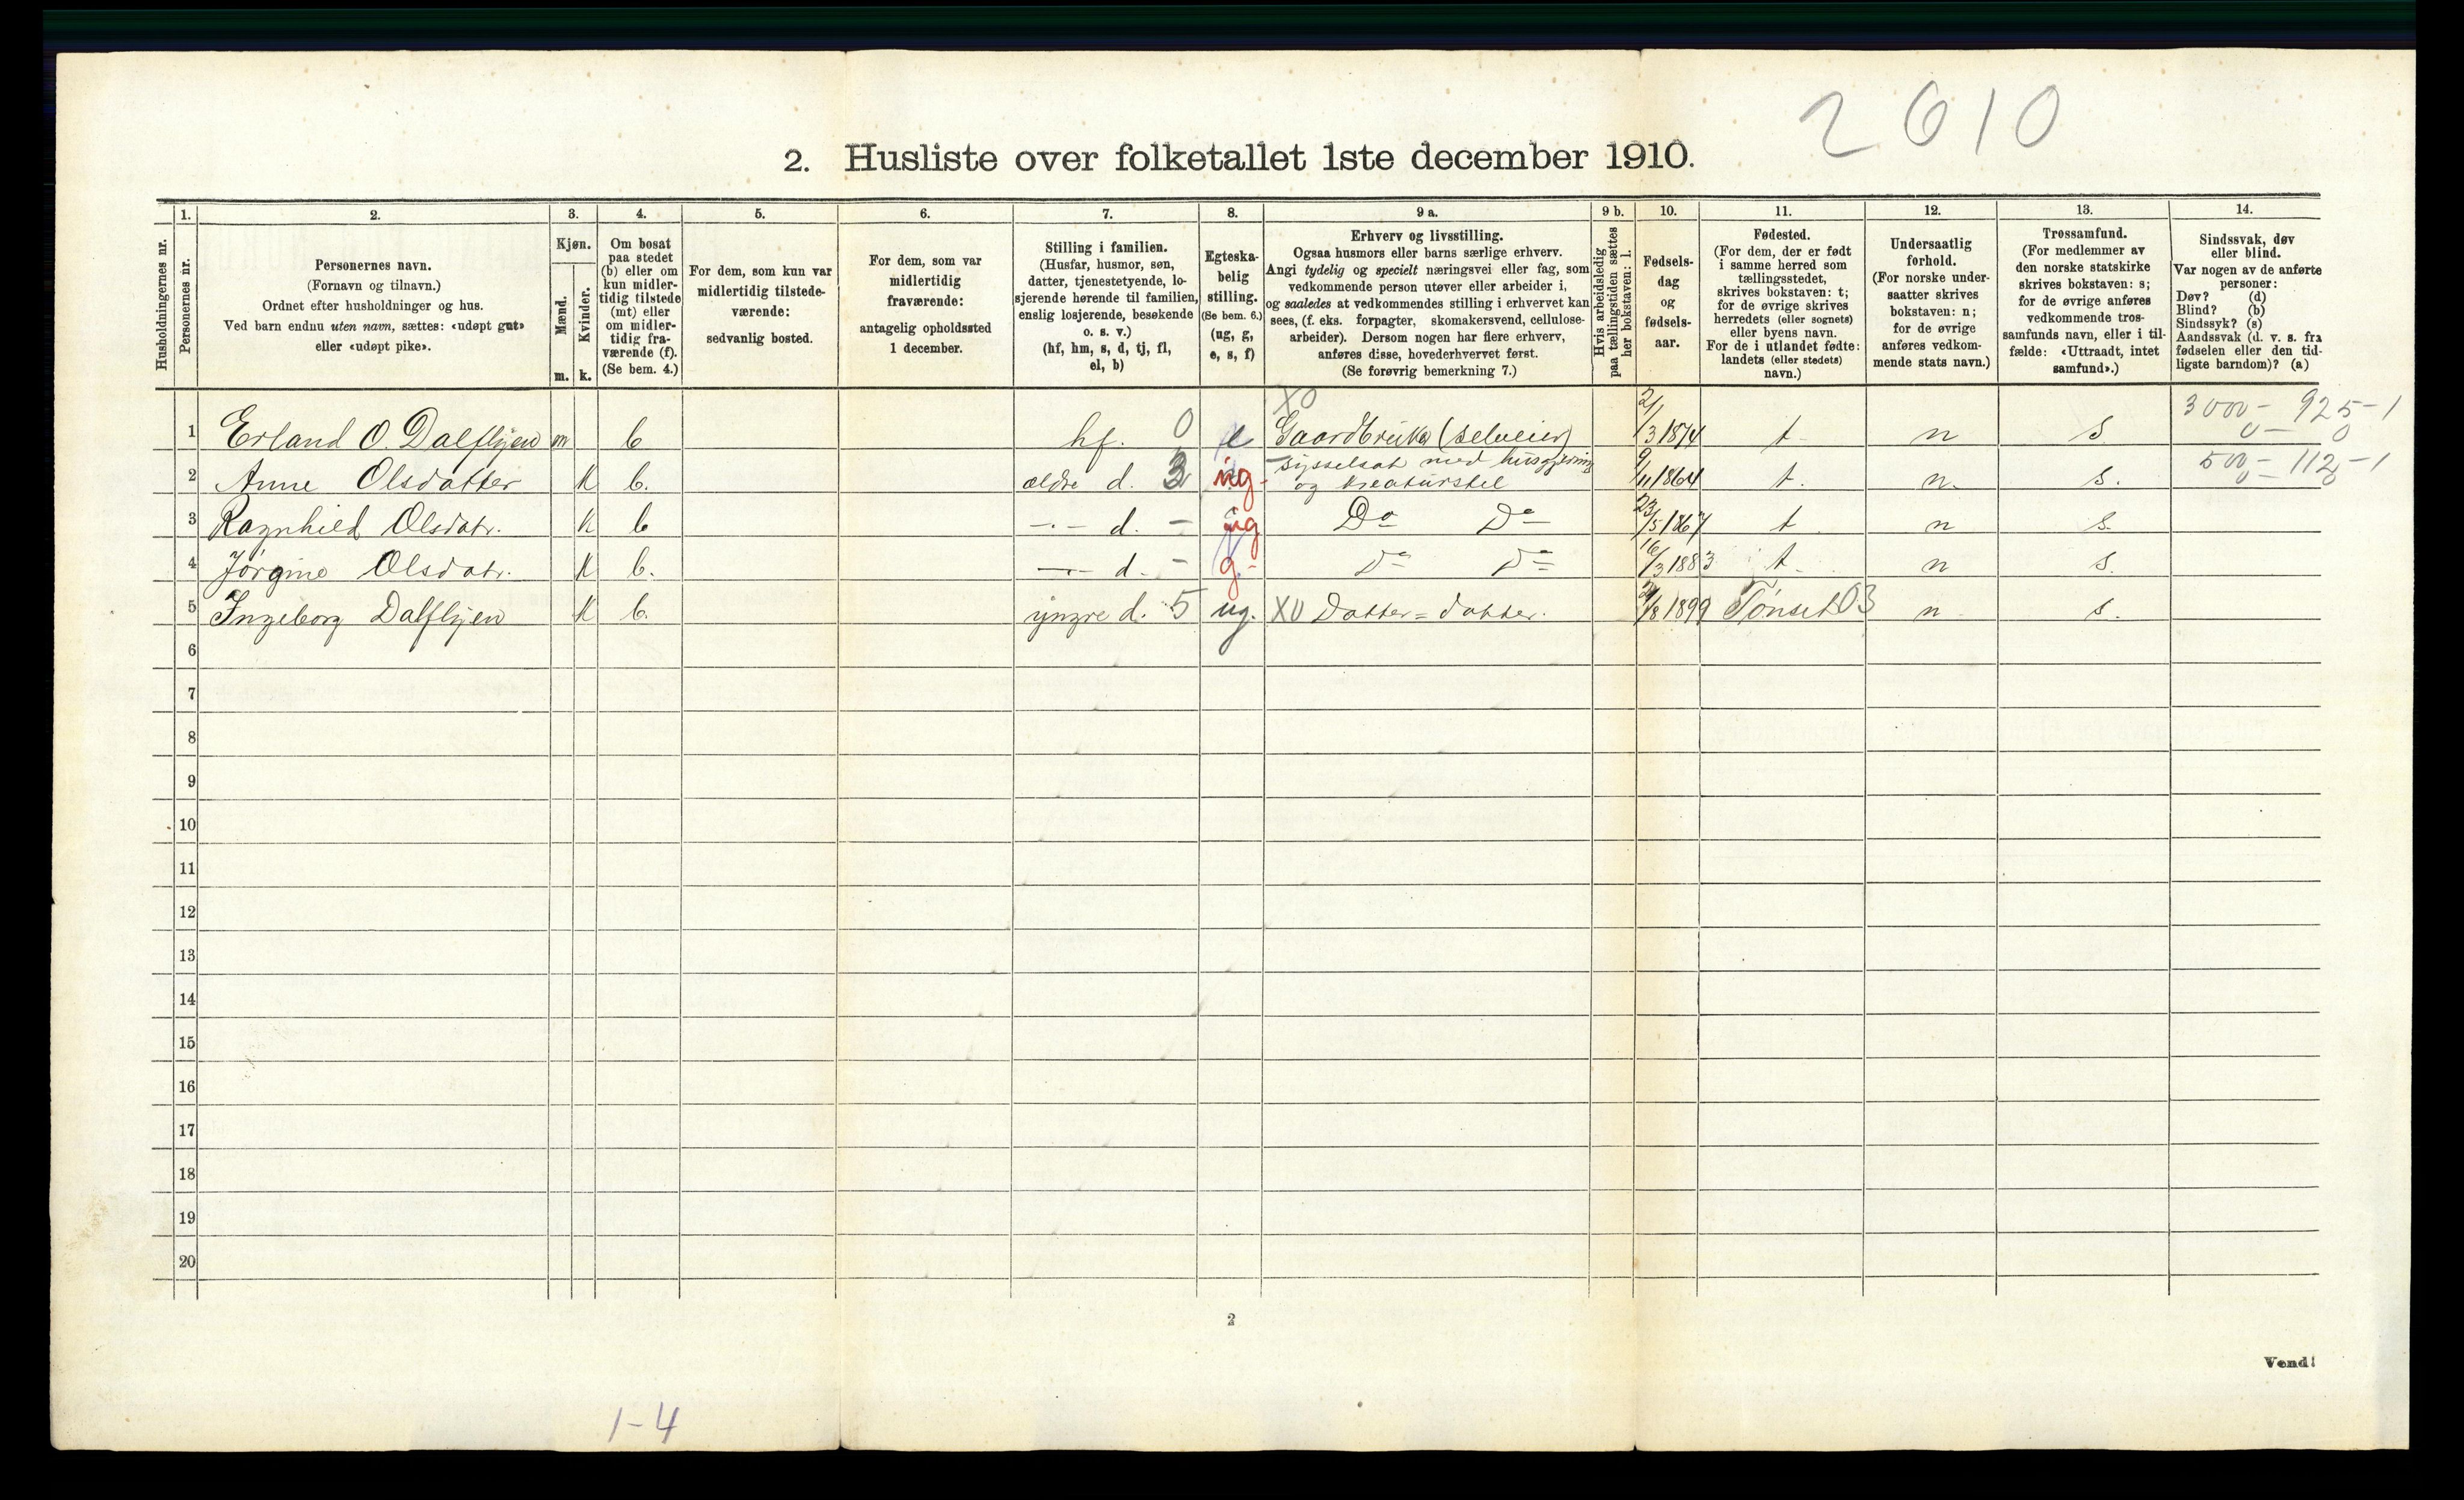 2610
2. Husliste over folketallet 1ste december 1910.
Husholdningernes nr.
1.
Personernes nr.
2.
Personernes navn.
(Fornavn og tilnavn.)
Ordnet efter husholdninger og hus.
Ved barn endnu uten navn, sættes: «udøpt gut»
eller «udøpt pike».
3.
Kjøn.
Mænd.
Kvinder.
m. k.
4.
Om bosat
paa stedet
(b) eller om
kun midler-
tidig tilstede
(mt) eller
om midler-
tidig fra-
værende (f).
(Se bem. 4.)
5.
For dem, som kun var
midlertidig tilstede-
værende:
sedvanlig bosted.
6.
For dem, som var
midlertidig
fraværende:
antagelig opholdssted
1 december.
7.
Stilling i familien.
(Husfar, husmor, søn,
datter, tjenestetyende, lo-
sjerende hørende til familien,
enslig losjerende, besøkende
o. s. v.)
(hf, hm, s, d, tj, fl,
el, b)
8.
Egteska-
belig
stilling.
(Se bem. 6.)
(ug, g,
e, s, f)
9 a.
Erhverv og livsstilling.
Ogsaa husmors eller barns særlige erhverv.
Angi tydelig og specielt næringsvei eller fag, som
vedkommende person utøver eller arbeider i,
og saaledes at vedkommendes stilling i erhvervet kan
sees, (f. eks. forpagter, skomakersvend, cellulose-
arbeider). Dersom nogen har flere erhverv,
anføres disse, hovederhvervet først.
(Se forøvrig bemerkning 7.)
9 b.
Hvis arbeidsledig
paa tællingstiden sættes
her bokstaven: l.
10.
Fødsels-
dag
og
fødsels-
aar.
11.
Fødested.
(For dem, der er født
i samme herred som
tællingsstedet,
skrives bokstaven: t;
for de øvrige skrives
herredets (eller sognets)
eller byens navn.
For de i utlandet fødte:
landets (eller stedets)
navn.)
12.
Undersaatlig
forhold.
(For norske under-
saatter skrives
bokstaven: n;
for de øvrige
anføres vedkom-
mende stats navn.)
13.
Trossamfund.
(For medlemmer av
den norske statskirke
skrives bokstaven: s;
for de øvrige anføres
vedkommende tros-
samfunds navn, eller i til-
fælde: «Uttraadt, intet
samfund».)
14.
Sindssvak, døv
eller blind.
Var nogen av de anførte
personer:
Døv? (d)
Blind? (b)
Sindssyk? (s)
Aandssvak (d. v. s. fra
fødselen eller den tid-
ligste barndom)? (a)
XO 3000 - 925 - 1
1 Erland O. Dalflyen m b hf. 0 e Gaardbruker (selveier) 2/3 1874 t n s. 0 - 0
2 Anne Olsdatter k b. ældre d. 3 ug - sysselsat med husgjerning og kreaturstel 9/11 1864 t. n. s. 500 - 112 - 1
0 - 0
3 Ragnhild Olsdatr. k b -.- d. - ug Do Do 23/5 1867 t n s.
4 Jørgine Olsdatr. k b. -.- d. - g - Do Do 16/3 1883 t. n s.
5 Ingeborg Dalflyen k b. yngre d. 5 ug. XO Datter = datter. /8 1899 Tønset 03 n s.
6
7
8
9
10
11
12
13
14
15
16
17
18
19
20
2
Vend!
1-4